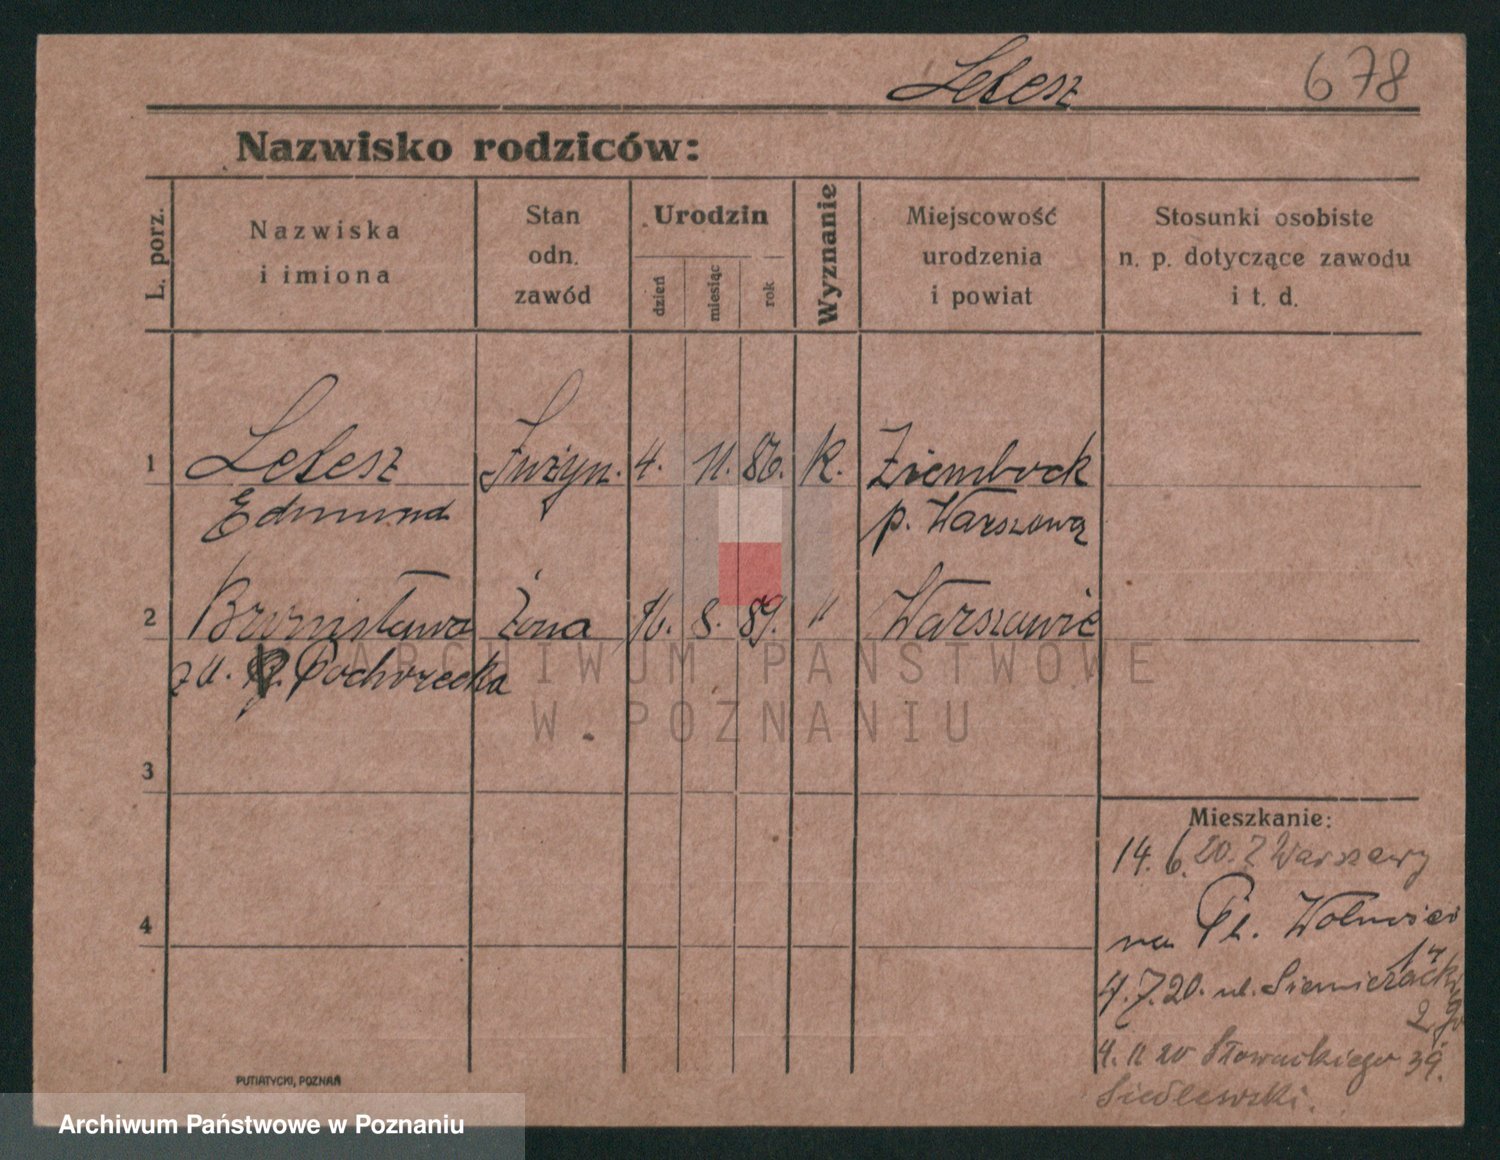 Letesz 678
Nazwisko rodziców:
L. porz.
Nazwiska
i imiona
Stan
odn.
zawód
Urodzin
dzień
miesiąc
rok
Wyznanie
Miejscowość
urodzenia
i powiat
Stosunki osobiste
n. p. dotyczące zawodu
i t. d.
1 Letesz Inżyn. 4. 11. 86. K. Ziembock
Edmund p. Warszawą
2 Bronisława Żona 16. 8. 89. " Warszawie
zu. Pochorecka
3
4
Mieszkanie:
14. 6. 20. z Warszawy
na Pl. Wolności
14
4.7.20. ul. Siemieradzkiego
2
4. 11 20 Słowackiego 39.
Siedlewski.
PUTIATYCKI, POZNAŃ
ARCHIWUM PAŃSTWOWE
W POZNANIU
Archiwum Państwowe w Poznaniu